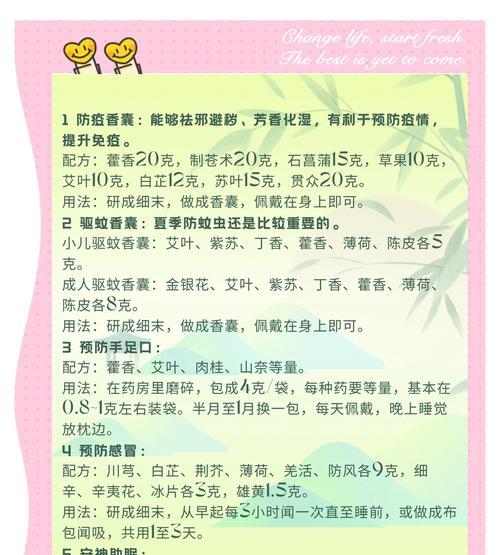 Change life, start fresh.
The best is yet to come.
1 防疫香囊：能够祛邪避秽、芳香化湿，有利于预防疫情，
提升免疫。
配方：藿香20克，制苍术20克，石菖蒲15克，草果10克，
艾叶10克，白芷12克，苏叶15克，贯众20克。
用法：研成细末，做成香囊，佩戴在身上即可。
2 驱蚊香囊：夏季防蚊虫还是比较重要的。
小儿驱蚊香囊：艾叶、紫苏、丁香、藿香、薄荷、陈皮各5
克。
成人驱蚊香囊：金银花、艾叶、紫苏、丁香、藿香、薄荷、
陈皮各8克。
用法：研成细末，做成香囊，佩戴在身上即可。
3 预防手足口：
配方：藿香、艾叶、肉桂、山奈等量。
用法：在药房里磨碎，包成4克/袋，每种药要等量，基本在
0.8-1克左右装袋。半月至1月换一包，每天佩戴，晚上睡觉
放枕边。
4 预防感冒：
配方：川芎、白芷、荆芥、薄荷、羌活、防风各9克，细
辛、辛夷花、冰片各3克，雄黄1.5克。
用法：研成细末，从早起每3小时闻一次直至睡前，或做成布
包闻吸，共用1至3天。
5 安神助眠：